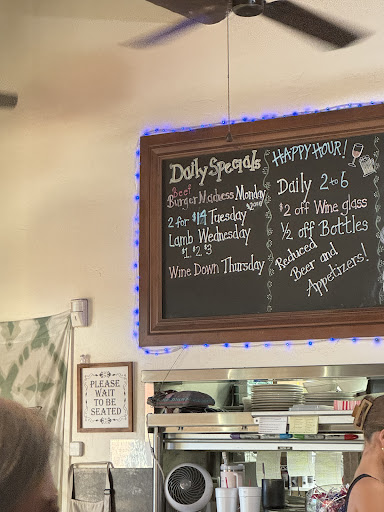 Daily Specials
Beef
Burger Madness Monday
2 for $14 Tuesday
Lamb Wednesday
$1, $2, $3
Wine Down Thursday
HAPPY HOUR!
Daily 2 to 6
$2 off Wine glass
½ off Bottles
Reduced
Beer and
Appetizers!
PLEASE
WAIT
TO BE
SEATED